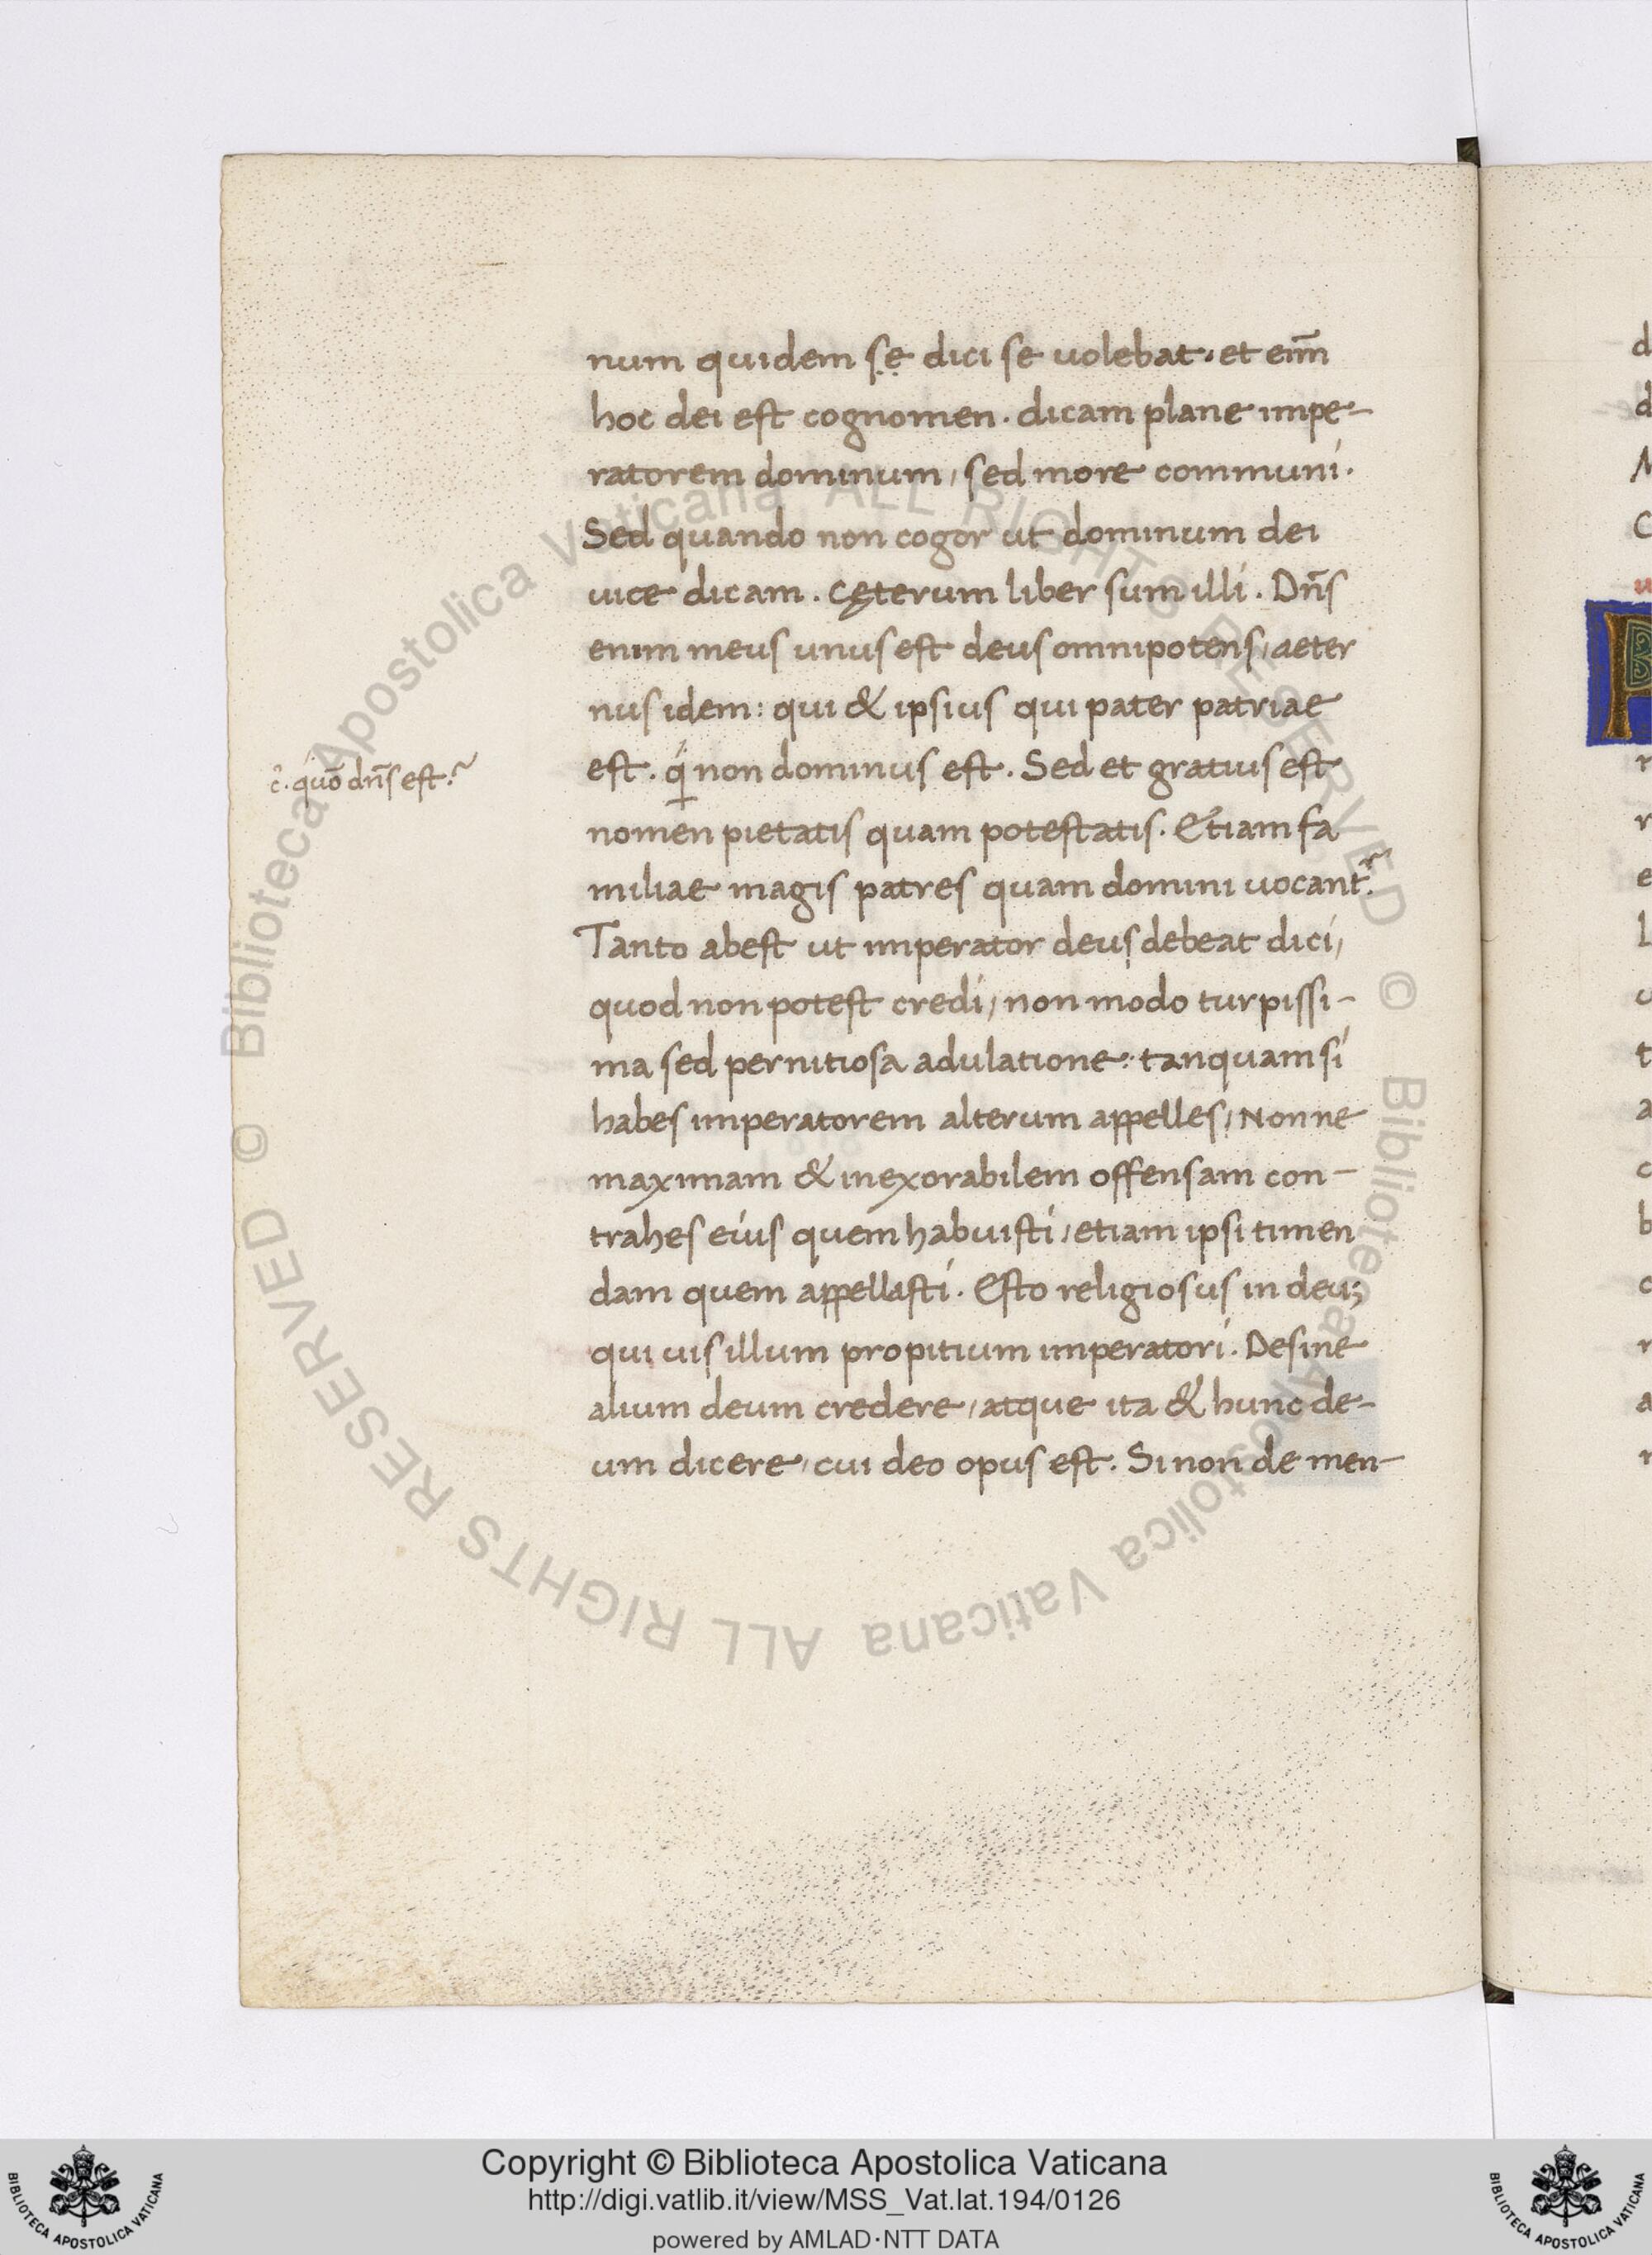 num quidem sẹ dici se uolebat. et eni̅m
hoc dei est cognomen. dicam plane impe-
ratorem dominum, sed more communi.
Sed quando non cogor ut dominum dei
uice dicam. Cęterum liber sum illi. Dn̅s
enim meus unus est deus omnipotens, aeter
nus idem: qui & ipsius qui pater patriae
est. non dominus est. Sed et gratius est
c̑. quo̅ dn̅s est?
nomen pietatis quam potestatis. Etiam fa
miliae magis patres quam domini uocant᷑.
Tanto abest ut imperator deuṣ debeat dici,
quod non potest credi, non modo turpissi-
ma sed pernitiosa adulatione: tanquam si
habes imperatorem alterum appelles, Nonne
maximam & inexorabilem offensam con-
trahes eius quem habuisti, etiam ipsi timen
dam quem appellasti. Esto religiosus in deuꝫ
qui uis illum propitium imperatori. Desine
alium deum credere, atque ita & hunc de-
um dicere, cui deo opus est. Si non de men-
d
d
M
C
© Biblioteca Apostolica Vaticana ALL RIGHTS RESERVED © Biblioteca Apostolica Vaticana ALL RIGHTS RESERVED
BIBLIOTECA APOSTOLICA VATICANA
Copyright © Biblioteca Apostolica Vaticana
http://digi.vatlib.it/view/MSS_Vat.lat.194/0126
powered by AMLAD·NTT DATA
BIBLIOTECA APOSTOLICA VATICANA